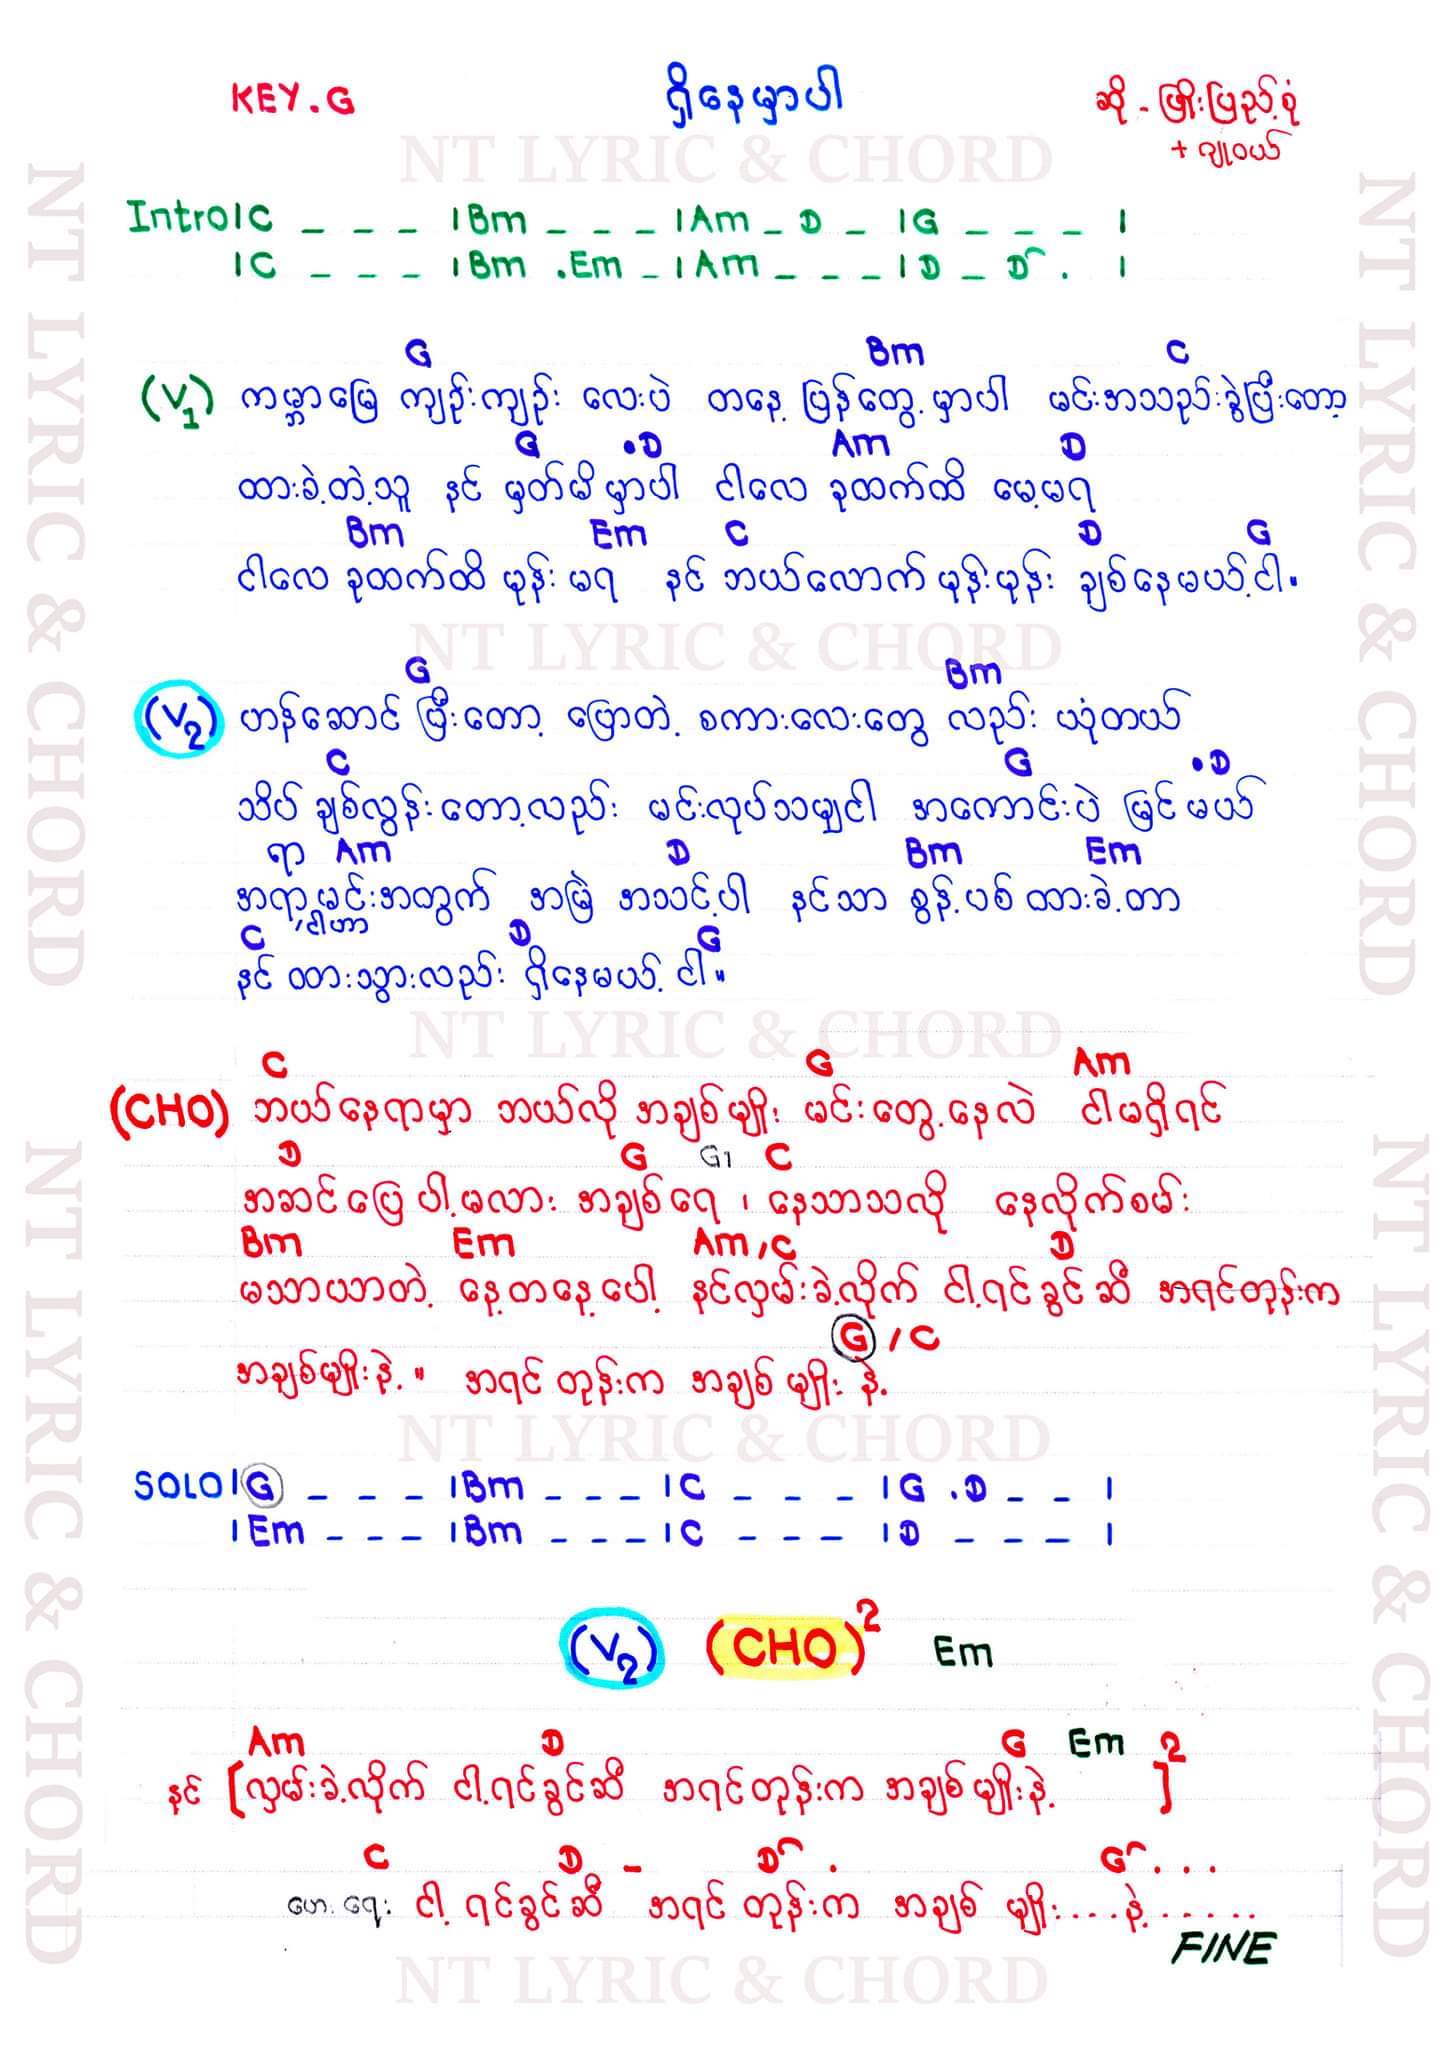 KEY.G
ရှိနေမှာပါ
ဆို - ဖြိုးပြည့်စုံ
+ ဂျူဝယ်
NT LYRIC & CHORD
Intro | C _ _ _ | Bm _ _ _ | Am _ D _ | G _ _ _ |
| C _ _ _ | Bm . Em _ | Am _ _ _ | D _ D .  |
G Bm C
(V1) ကမ္ဘာမြေ ကျဉ်းကျဉ်း လေးပဲ တနေ့ ပြန်တွေ့မှာပါ မင်းအသည်းခွဲပြီးတော့
G .D Am D
ထားခဲ့တဲ့သူ နင် မှတ်မိမှာပါ ငါလေ ခုထက်ထိ မေ့မရ
Bm Em C D G
ငါလေ ခုထက်ထိ မုန်းမရ နင် ဘယ်လောက်မုန်းမုန်း ချစ်နေမယ့်ငါ။
NT LYRIC & CHORD
G Bm
(V2) ဟန်ဆောင် ပြီးတော့ ပြောတဲ့ စကားလေးတွေ လည်း ယုံတယ်
C G .D
သိပ် ချစ်လွန်းတော့လည်း မင်းလုပ်သမျှငါ အကောင်းပဲ မြင်မယ်
ရာ Am D Bm Em
အရာ မင်းအတွက် အမြဲ အသင့်ပါ နင်သာ စွန့်ပစ်ထားခဲ့တာ
ငါဟာ
C D G
နင် ထားသွားလည်း ရှိနေမယ့် ငါ။
NT LYRIC & CHORD
C G Am
(CHO) ဘယ်နေရာမှာ ဘယ်လိုအချစ်မျိုး မင်းတွေ့နေလဲ ငါမရှိရင်
D G G၊ C
အဆင်ပြေပါ့မလား အချစ်ရေ ၊ နေသာသလို နေလိုက်စမ်း
Bm Em Am , C D
မသာယာတဲ့ နေ့တနေ့ပေါ့ နင်လှမ်းခဲ့လိုက် ငါ့ရင်ခွင်ဆီ အရင်တုန်းက
G / C
အချစ်မျိုးနဲ့ ။ အရင်တုန်းက အချစ်မျိုးနဲ့
NT LYRIC & CHORD
SOLO | G _ _ _ | Bm _ _ _ | C _ _ _ | G . D _ _ |
| Em _ _ _ | Bm _ _ _ | C _ _ _ | D _ _ _ |
(V2) (CHO)2 Em
Am D G Em 2
နင် [လှမ်းခဲ့လိုက် ငါ့ရင်ခွင်ဆီ အရင်တုန်းက အချစ်မျိုးနဲ့ ]
C D _ D . G . . .
ဟေးရေး ငါ့ရင်ခွင်ဆီ အရင်တုန်းက အချစ်မျိုး....နဲ့......
FINE
NT LYRIC & CHORD
NT LYRIC & CHORD
NT LYRIC & CHORD
NT LYRIC & CHORD
NT LYRIC & CHORD